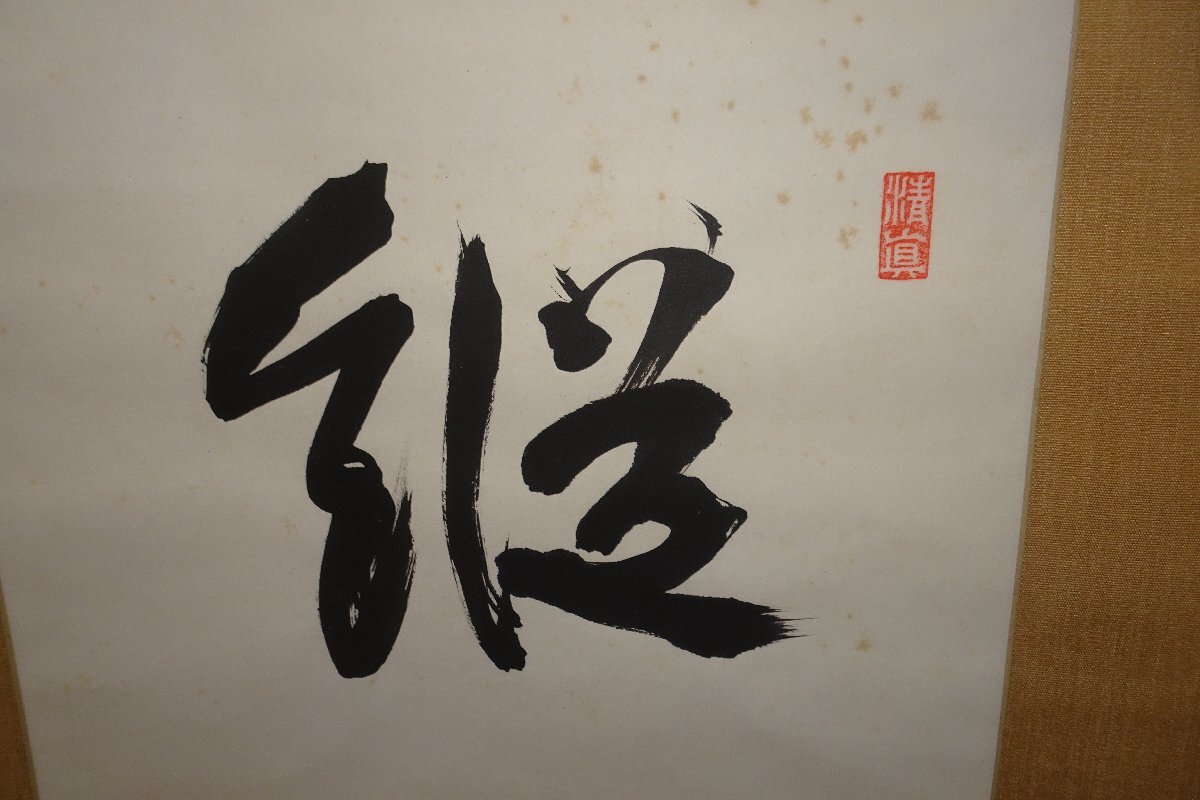 清眞
縦